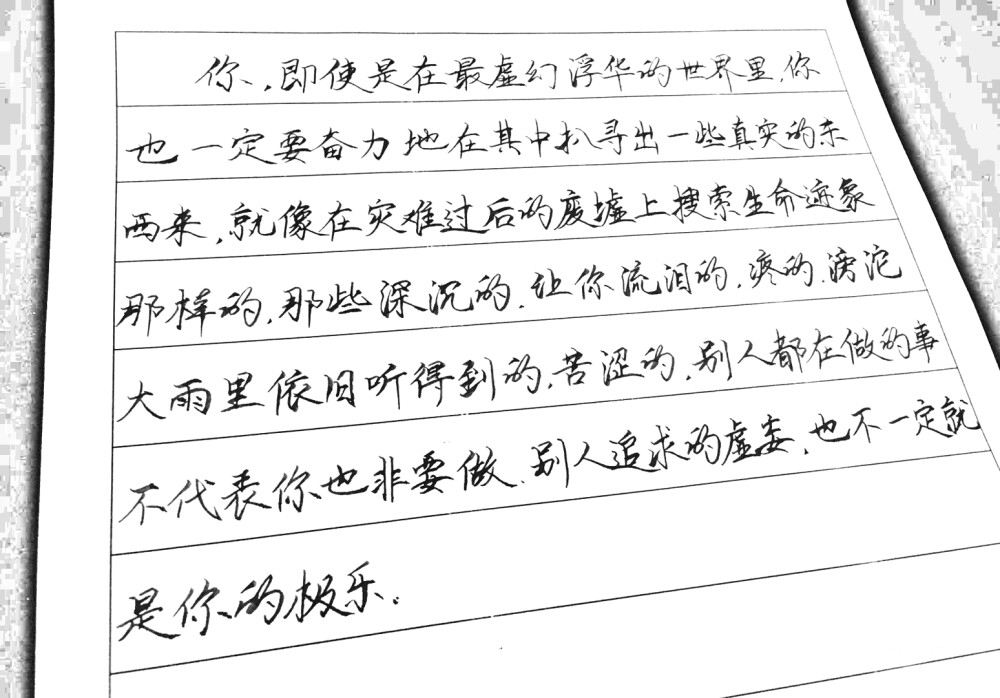 你，即使是在最虚幻浮华的世界里，你
也一定要奋力地在其中扒寻出一些真实的东
西来，就像在灾难过后的废墟上搜索生命迹象
那样的，那些深沉的，让你流泪的，疼的，滂沱
大雨里依旧听得到的，苦涩的，别人都在做的事
不代表你也非要做，别人追求的虚妄，也不一定就
是你的极乐.